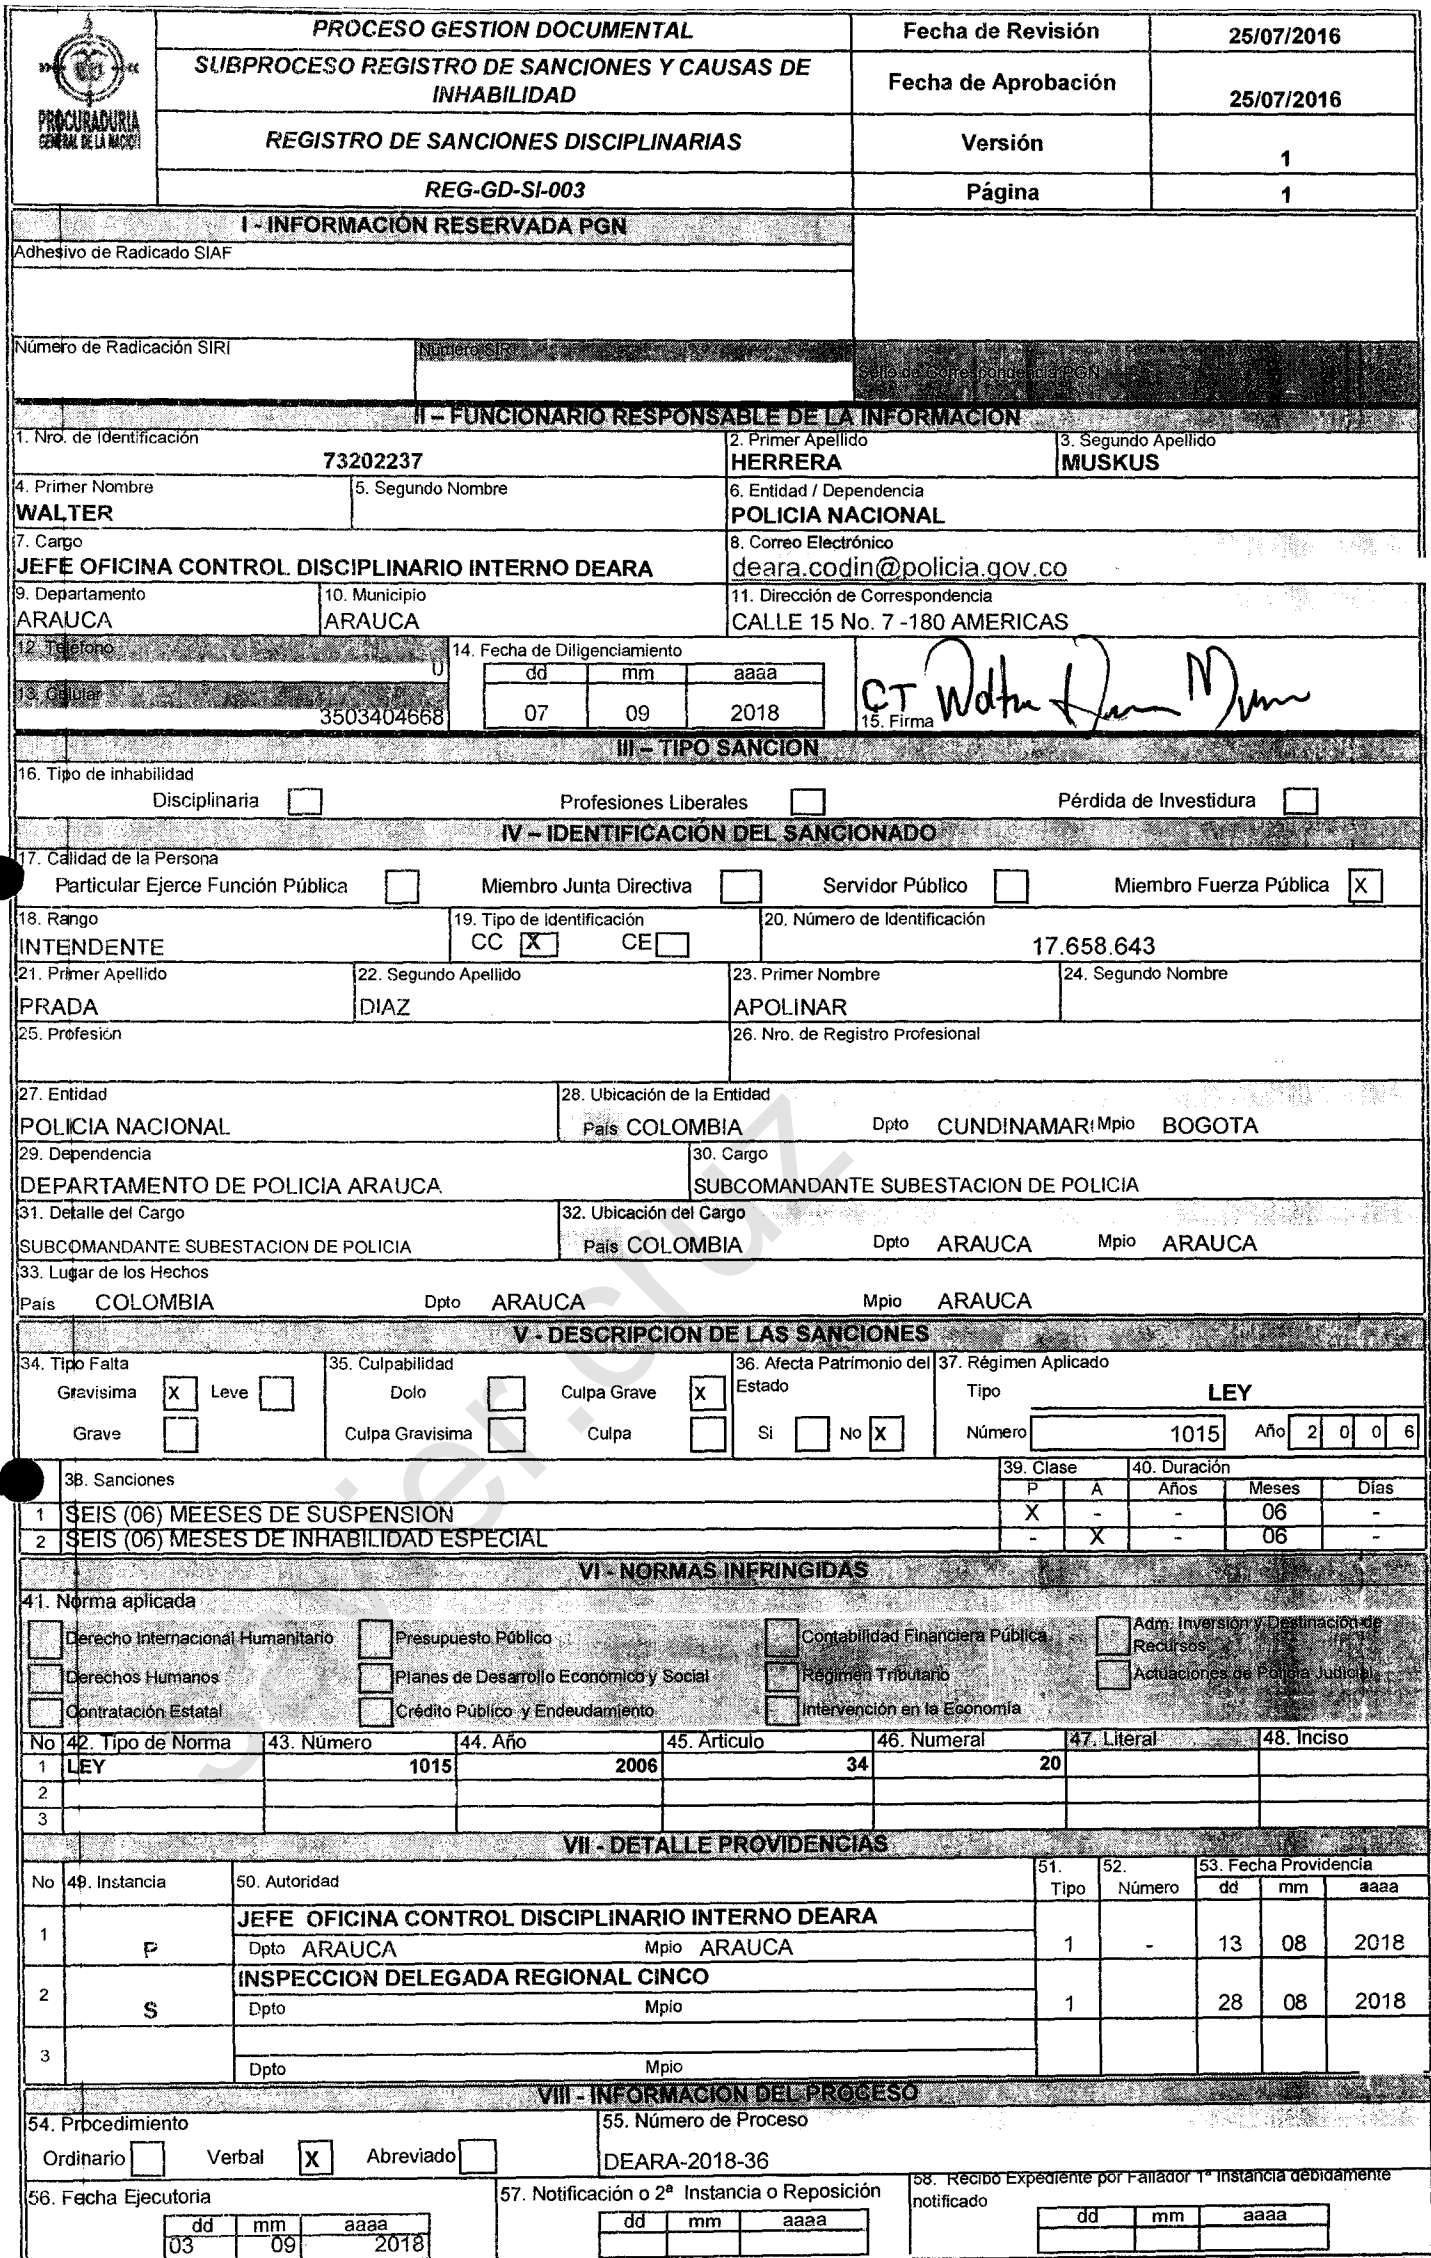 PROCESO GESTION DOCUMENTAL
Fecha de Revisión
25/07/2016
SUBPROCESO REGISTRO DE SANCIONES Y CAUSAS DE
INHABILIDAD
Fecha de Aprobación
25/07/2016
PROCURADURIA
GENERAL DE LA NACION
REGISTRO DE SANCIONES DISCIPLINARIAS
Versión
1
REG-GD-SI-003
Página
1
I - INFORMACIÓN RESERVADA PGN
Adhesivo de Radicado SIAF
Número de Radicación SIRI
Número SIRI
Sello de Correspondencia PGN
II – FUNCIONARIO RESPONSABLE DE LA INFORMACION
1. Nro. de Identificación
73202237
2. Primer Apellido
HERRERA
3. Segundo Apellido
MUSKUS
4. Primer Nombre
WALTER
5. Segundo Nombre
6. Entidad / Dependencia
POLICIA NACIONAL
7. Cargo
JEFE OFICINA CONTROL DISCIPLINARIO INTERNO DEARA
8. Correo Electrónico
deara.codin@policia.gov.co
9. Departamento
ARAUCA
10. Municipio
ARAUCA
11. Dirección de Correspondencia
CALLE 15 No. 7 -180 AMERICAS
12. Teléfono
0
13. Celular
3503404668
14. Fecha de Diligenciamiento
dd mm aaaa
07 09 2018
CT
15. Firma
III – TIPO SANCION
16. Tipo de inhabilidad
Disciplinaria Profesiones Liberales Pérdida de Investidura
IV – IDENTIFICACIÓN DEL SANCIONADO
17. Calidad de la Persona
Particular Ejerce Función Pública Miembro Junta Directiva Servidor Público Miembro Fuerza Pública X
18. Rango
INTENDENTE
19. Tipo de Identificación
CC X CE
20. Número de Identificación
17.658.643
21. Primer Apellido
PRADA
22. Segundo Apellido
DIAZ
23. Primer Nombre
APOLINAR
24. Segundo Nombre
25. Profesión
26. Nro. de Registro Profesional
27. Entidad
POLICIA NACIONAL
28. Ubicación de la Entidad
País COLOMBIA Dpto CUNDINAMAR Mpio BOGOTA
29. Dependencia
DEPARTAMENTO DE POLICIA ARAUCA
30. Cargo
SUBCOMANDANTE SUBESTACION DE POLICIA
31. Detalle del Cargo
SUBCOMANDANTE SUBESTACION DE POLICIA
32. Ubicación del Cargo
País COLOMBIA Dpto ARAUCA Mpio ARAUCA
33. Lugar de los Hechos
País COLOMBIA Dpto ARAUCA Mpio ARAUCA
V - DESCRIPCION DE LAS SANCIONES
34. Tipo Falta
Gravisima X Leve
Grave
35. Culpabilidad
Dolo Culpa Grave X
Culpa Gravisima Culpa
36. Afecta Patrimonio del
Estado
Si No X
37. Régimen Aplicado
Tipo LEY
Número 1015 Año 2 0 0 6
38. Sanciones
39. Clase
P A
40. Duración
Años Meses Días
1 SEIS (06) MEESES DE SUSPENSION X - - 06 -
2 SEIS (06) MESES DE INHABILIDAD ESPECIAL - X - 06 -
VI - NORMAS INFRINGIDAS
41. Norma aplicada
Derecho Internacional Humanitario Presupuesto Público Contabilidad Financiera Pública Adm. Inversión y Destinación de
Recursos
Derechos Humanos Planes de Desarrollo Económico y Social Régimen Tributario Actuaciones de Policía Judicial
Contratación Estatal Crédito Público y Endeudamiento Intervención en la Economía
No 42. Tipo de Norma 43. Número 44. Año 45. Articulo 46. Numeral 47. Literal 48. Inciso
1 LEY 1015 2006 34 20
2
3
VII - DETALLE PROVIDENCIAS
No 49. Instancia 50. Autoridad
51.
Tipo
52.
Número
53. Fecha Providencia
dd mm aaaa
JEFE OFICINA CONTROL DISCIPLINARIO INTERNO DEARA
1 P Dpto ARAUCA Mpio ARAUCA 1 - 13 08 2018
INSPECCION DELEGADA REGIONAL CINCO
2 S Dpto Mpio 1 28 08 2018
3 Dpto Mpio
VIII - INFORMACION DEL PROCESO
54. Procedimiento
Ordinario Verbal X Abreviado
55. Número de Proceso
DEARA-2018-36
56. Fecha Ejecutoria
dd mm aaaa
03 09 2018
57. Notificación o 2ª Instancia o Reposición
dd mm aaaa
58. Recibo Expediente por Fallador 1ª Instancia debidamente
notificado
dd mm aaaa